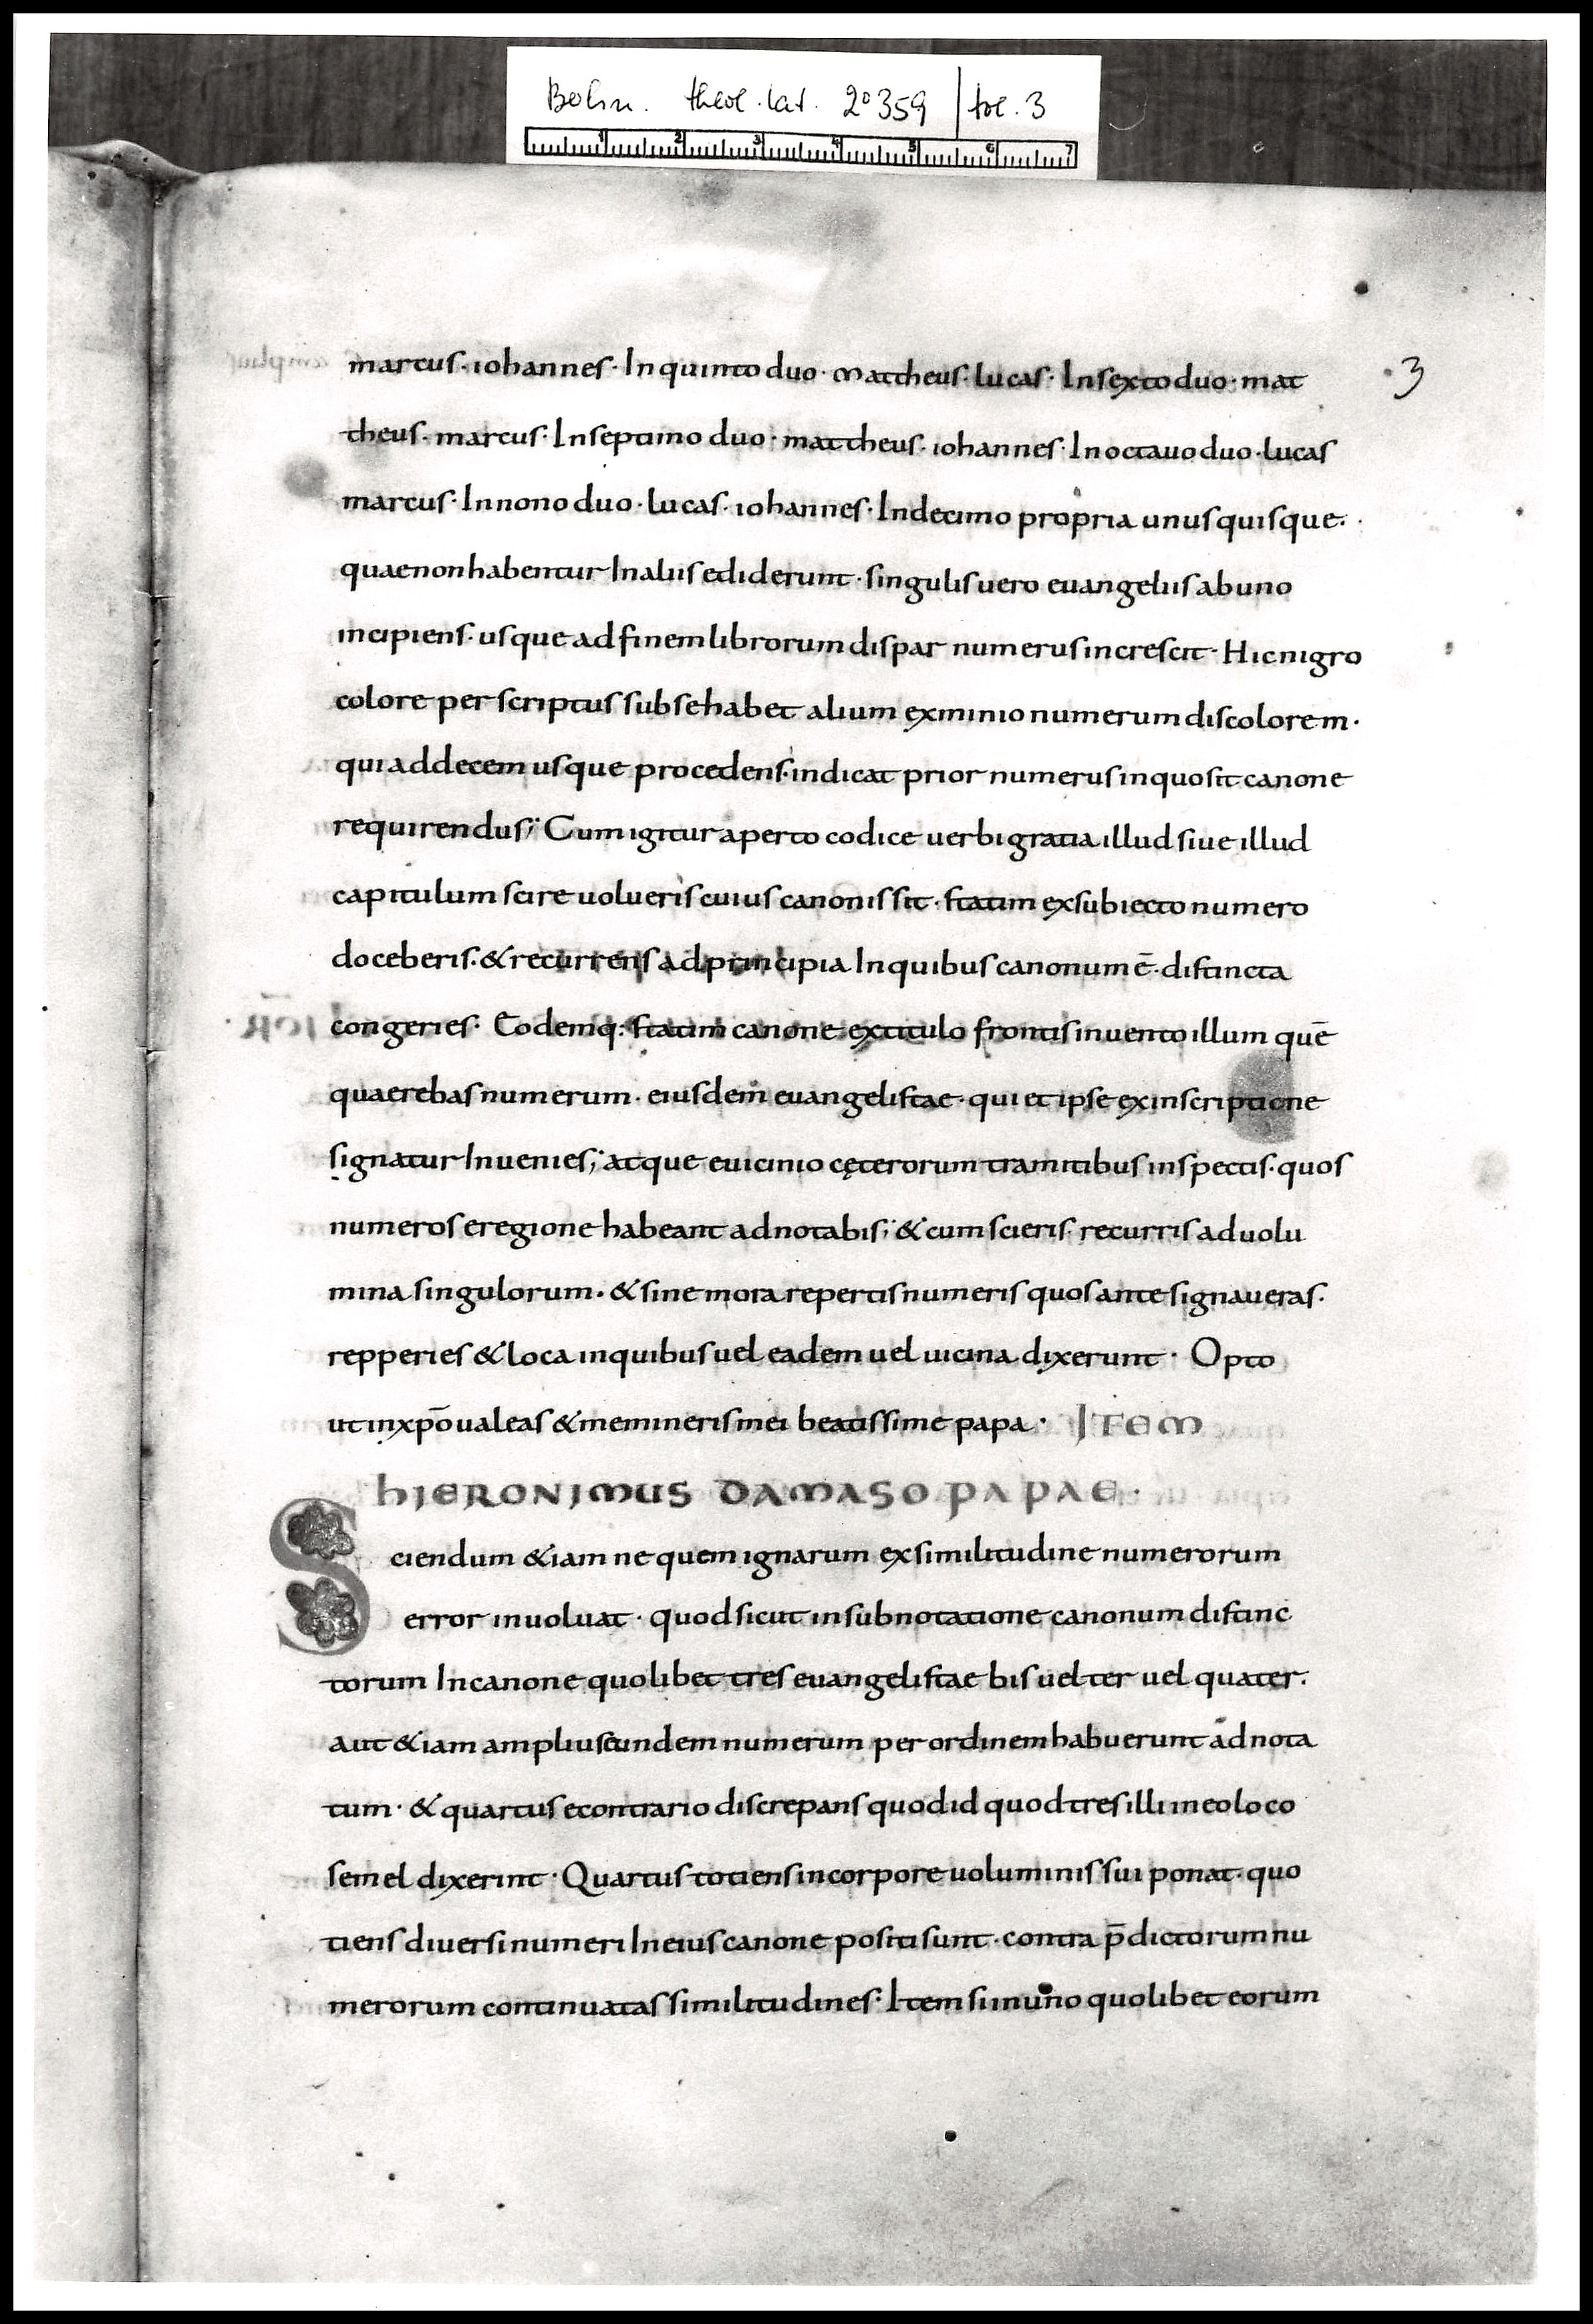 Berlin. theol. lat. 2° 359 | fol. 3
1 2 3 4 5 6 7
marcus · iohannes · In quinto duo · mattheus · lucas · In sexto duo · mat
3
theus · marcus · In septimo duo · mattheus · iohannes · In octauo duo · lucas
marcus · In nono duo · lucas · iohannes · In decimo propria unusquisque ·
quae non habentur In aliis ediderunt · singulis uero euangeliis ab uno
incipiens · usque ad finem librorum dispar numerus increscit · Hic nigro
colore perscriptus sub se habet alium ex minio numerum discolorem ·
qui ad decem usque procedens · indicat prior numerus in quo sit canone
requirendus; Cum igitur aperto codice uerbi gratia illud siue illud
capitulum scire uolueris cuius canonis sit · statim ex subiecto numero
doceberis · & recurrens ad principia In quibus canonum ē · distincta
congeries · Eodemq: statim canone ex titulo frontis inuento illum quē
quaerebas numerum · eiusdem euangelistae · qui et ipse ex inscriptione
signatur Inuenies; atque e uicino cęterorum tramitibus inspectis · quos
numeros e regione habeant adnotabis; & cum scieris · recurris ad uolu
mina singulorum · & sine mora repertis numeris quos ante signaueras ·
repperies & loca in quibus uel eadem uel uicina dixerunt · Opto
ut in xp̄o ualeas & memineris mei beatissime papa · ITEM
hIERONIMUS DAMASO PAPAE ·
Sciendum &iam ne quem ignarum ex similitudine numerorum
error inuoluat · quod sicut in subnotatione canonum distinc
torum In canone quolibet tres euangelistae bis uel ter uel quater ·
aut &iam amplius eundem numerum per ordinem habuerunt adnota
tum · & quartus e contrario discrepans quod id quod tres illi in eo loco
semel dixerint · Quartus totiens in corpore uoluminis sui ponat · quo
tiens diuersi numeri In eius canone positi sunt · contra p̄dictorum nu
merorum continuatas similitudines · Item si in uno quolibet eorum